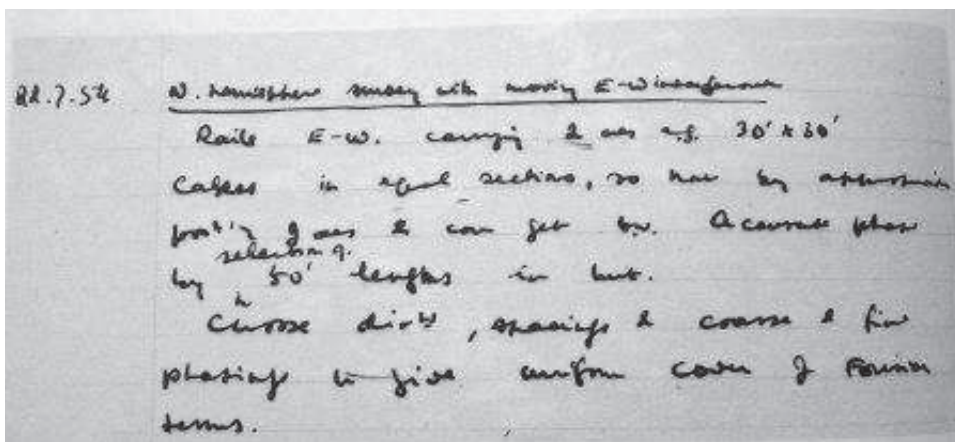 22.7.54 N. hemisphere survey with moving E-W interferometer
Rails E-W. carrying 2 aes e.g. 30' x 30'
Cables in equal sections, so that by appropriate
of aes & can get Accurate phase
selection of
by 50' lengths in hut.
Choose dirns, spacings & coarse & fine
phasings to give uniform cover of Fourier
terms.